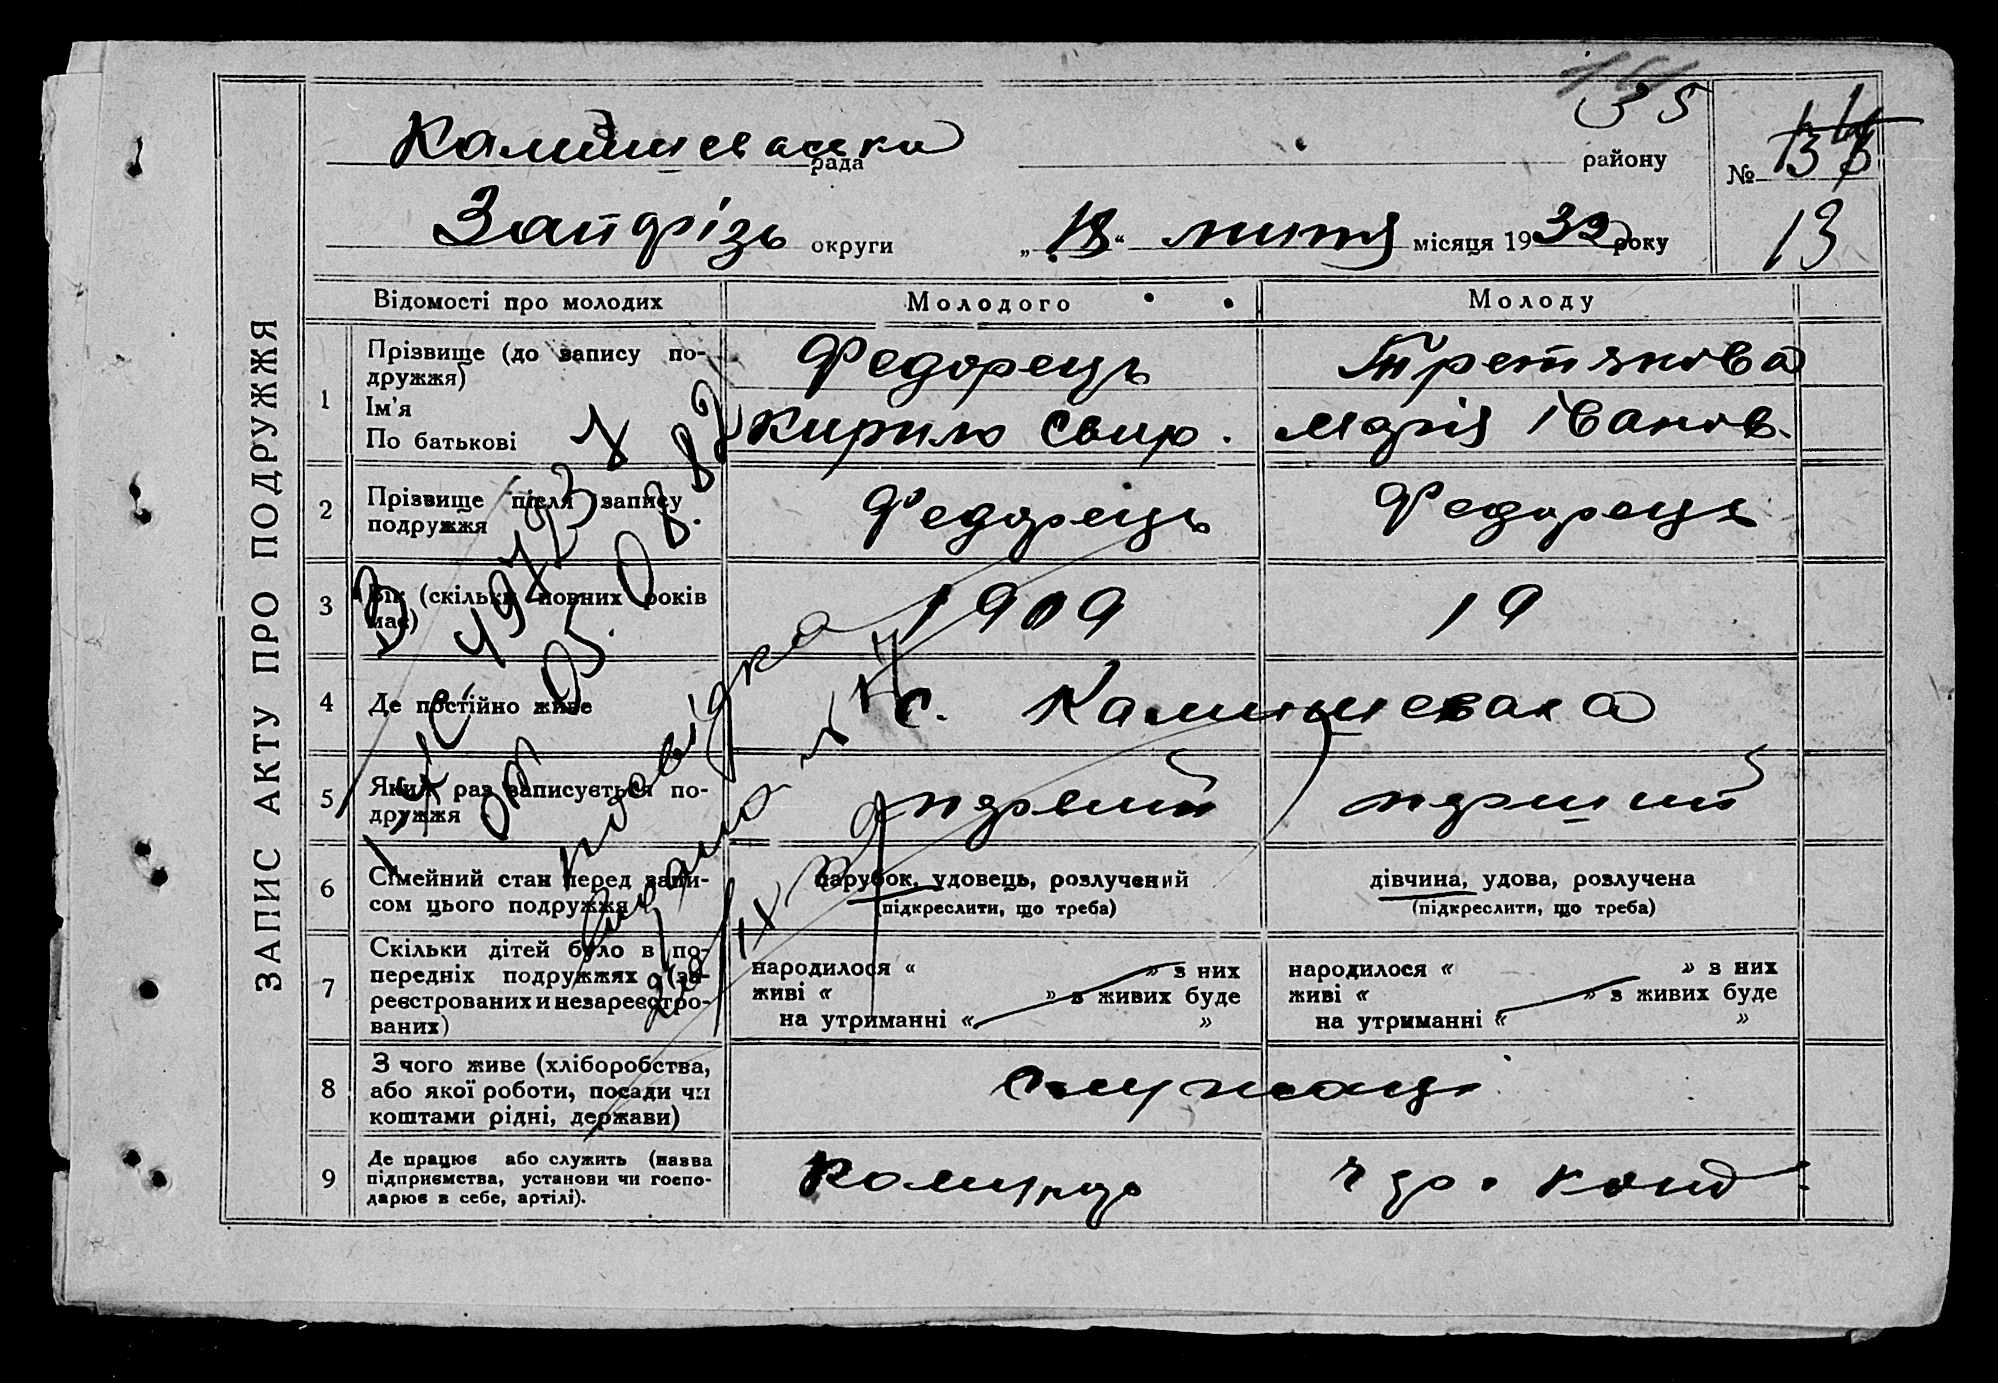 35
Камишеваська рада району
№ 13
Запоріз округи „ 13 “ лютня місяця 1932 року
13
ЗАПИС АКТУ ПРО ПОДРУЖЖЯ
Відомості про молодих Молодого Молоду
1 Прізвище (до запису по-
дружжя)
Ім'я
По батькові
Федорець Третякова
Кирило Свир. Марія Іванов.
2 Прізвище після запису
подружжя
Федорець Федорець
3 Вік (скільки повних років
має)
1909 19
4 Де постійно живе
с. Камишеваха
5 Який раз записується по-
дружжя
первий перший
6 Сімейний стан перед запи-
сом цього подружжя
парубок, удовець, розлучений
(підкреслити, що треба)
дівчина, удова, розлучена
(підкреслити, що треба)
7 Скільки дітей було в по-
передніх подружжях (за-
реєстрованих и незареєстро-
ваних)
народилося “ ” з них
живі “ ” з живих буде
на утриманні “ ”
народилося “ ” з них
живі “ ” з живих буде
на утриманні “ ”
8 З чого живе (хліборобства,
або якої роботи, посади чи
коштами рідні, держави)
служащі
9 Де працює або служить (назва
підприємства, установи чи госпо-
дарює в себе, артілі).
от 05.08.82